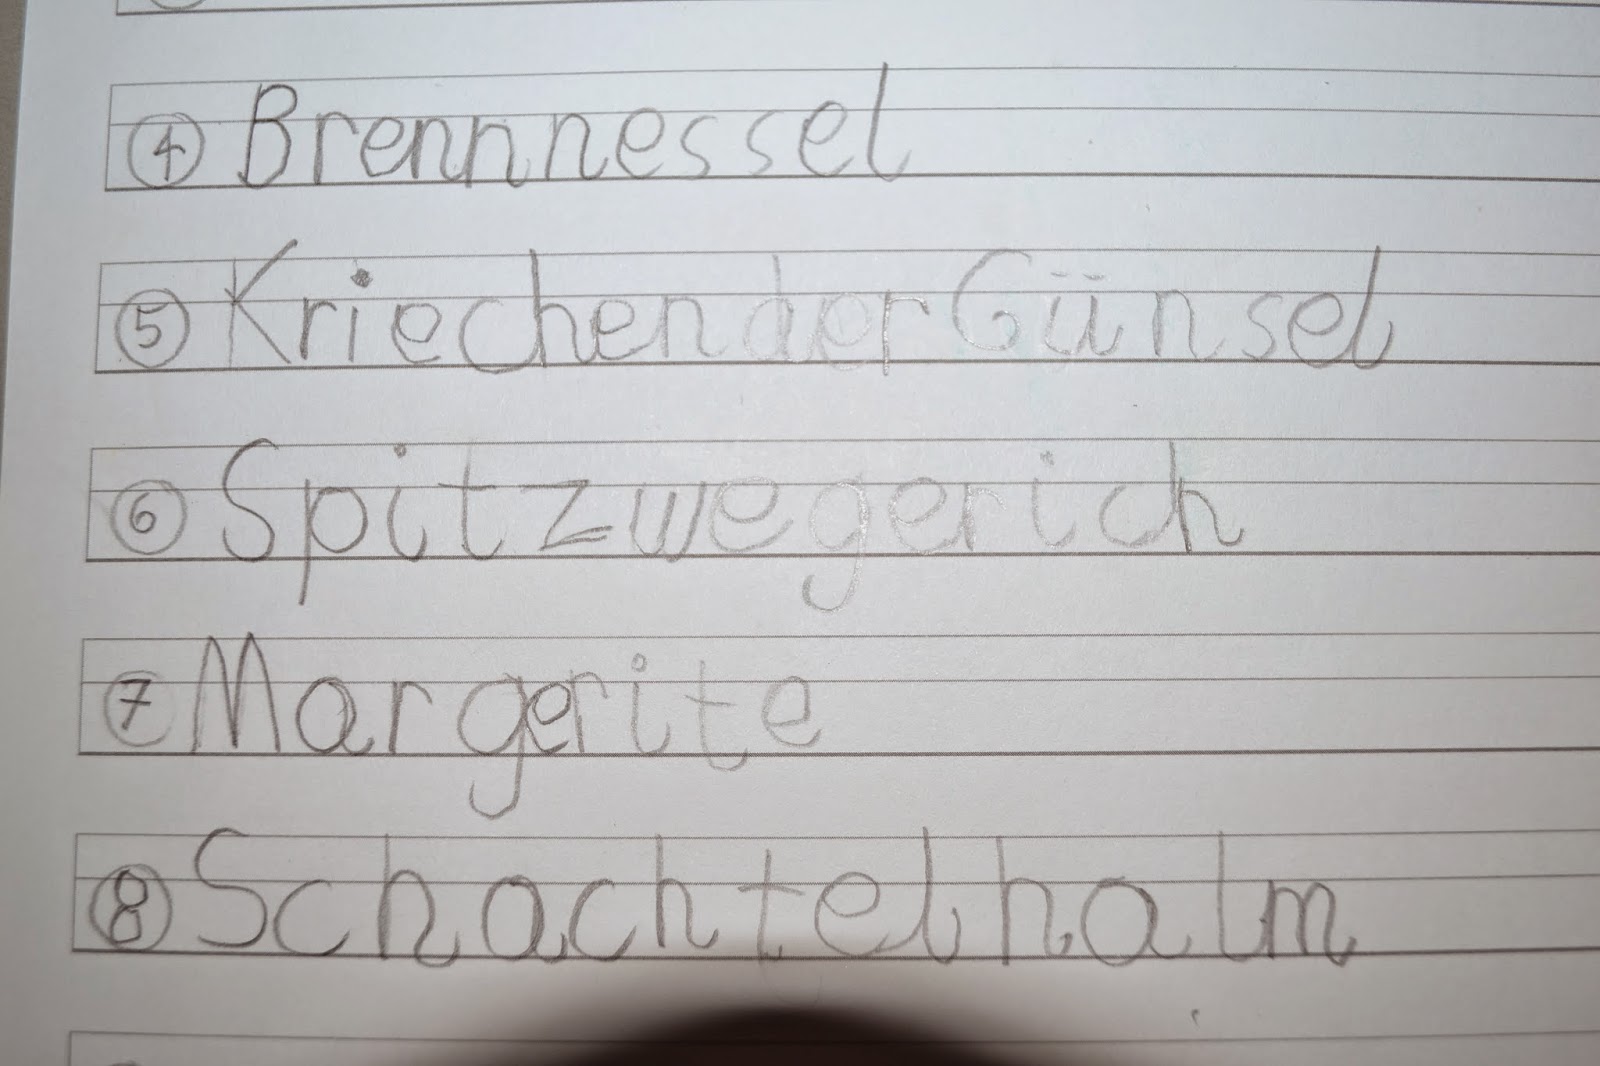 ④ Brennnessel
⑤ Kriechender Günsel
⑥ Spitzwegerich
⑦ Margerite
⑧ Schachtelhalm